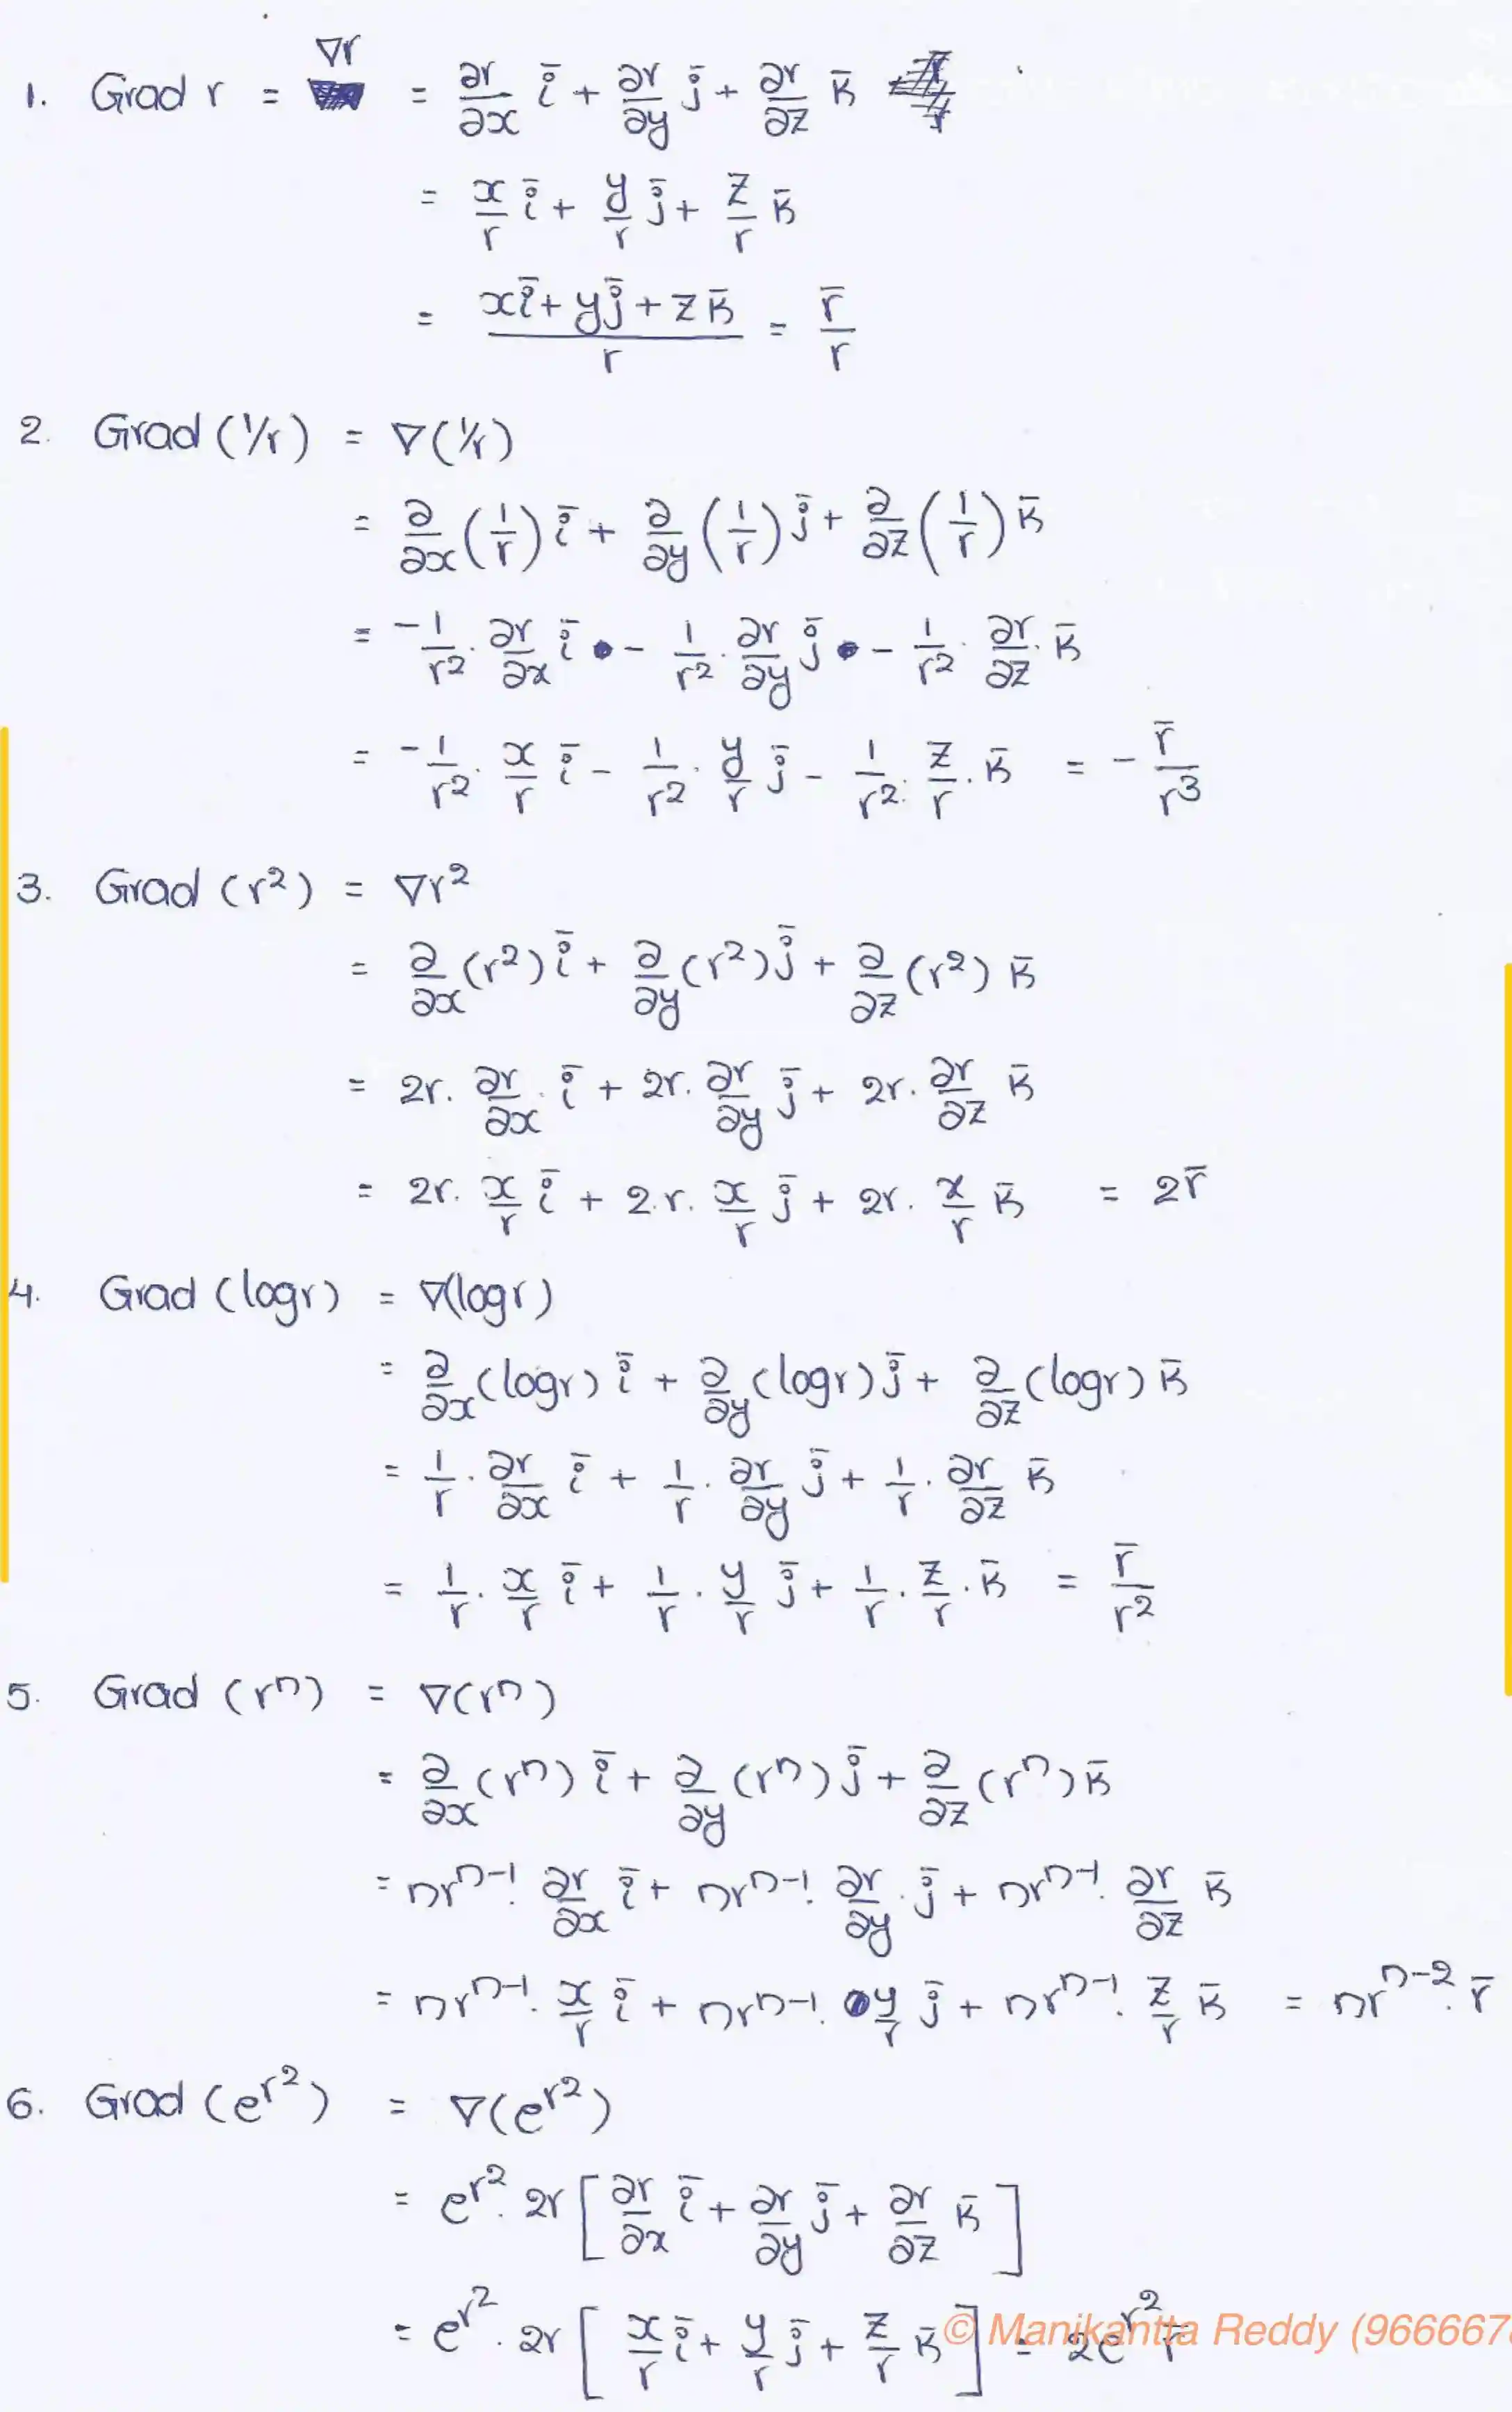 1. Grad r = ∇r = ∂r/∂x i̅ + ∂r/∂y j̅ + ∂r/∂z k̅
= x/r i̅ + y/r j̅ + z/r k̅
= (x i̅ + y j̅ + z k̅)/r = r̅/r
2. Grad (1/r) = ∇(1/r)
= ∂/∂x (1/r) i̅ + ∂/∂y (1/r) j̅ + ∂/∂z (1/r) k̅
= -1/r² · ∂r/∂x i̅ - 1/r² · ∂r/∂y j̅ - 1/r² · ∂r/∂z · k̅
= -1/r² · x/r i̅ - 1/r² · y/r j̅ - 1/r² · z/r · k̅ = - r̅/r³
3. Grad (r²) = ∇r²
= ∂/∂x (r²) i̅ + ∂/∂y (r²) j̅ + ∂/∂z (r²) k̅
= 2r · ∂r/∂x · i̅ + 2r · ∂r/∂y j̅ + 2r · ∂r/∂z k̅
= 2r · x/r i̅ + 2·r · x/r j̅ + 2r · x/r k̅ = 2r̅
4. Grad (logr) = ∇(logr)
= ∂/∂x (logr) i̅ + ∂/∂y (logr) j̅ + ∂/∂z (logr) k̅
= 1/r · ∂r/∂x i̅ + 1/r · ∂r/∂y j̅ + 1/r · ∂r/∂z k̅
= 1/r · x/r i̅ + 1/r · y/r j̅ + 1/r · z/r · k̅ = r̅/r²
5. Grad (rⁿ) = ∇(rⁿ)
= ∂/∂x (rⁿ) i̅ + ∂/∂y (rⁿ) j̅ + ∂/∂z (rⁿ) k̅
= nrⁿ⁻¹ · ∂r/∂x i̅ + nrⁿ⁻¹ · ∂r/∂y · j̅ + nrⁿ⁻¹ · ∂r/∂z k̅
= nrⁿ⁻¹ · x/r i̅ + nrⁿ⁻¹ · y/r j̅ + nrⁿ⁻¹ · z/r k̅ = nrⁿ⁻² · r̅
6. Grad (e^r²) = ∇(e^r²)
= e^r² · 2r [∂r/∂x i̅ + ∂r/∂y j̅ + ∂r/∂z k̅]
= e^r² · 2r [x/r i̅ + y/r j̅ + z/r k̅] = 2e^r² r̅
© Manikantta Reddy (966667